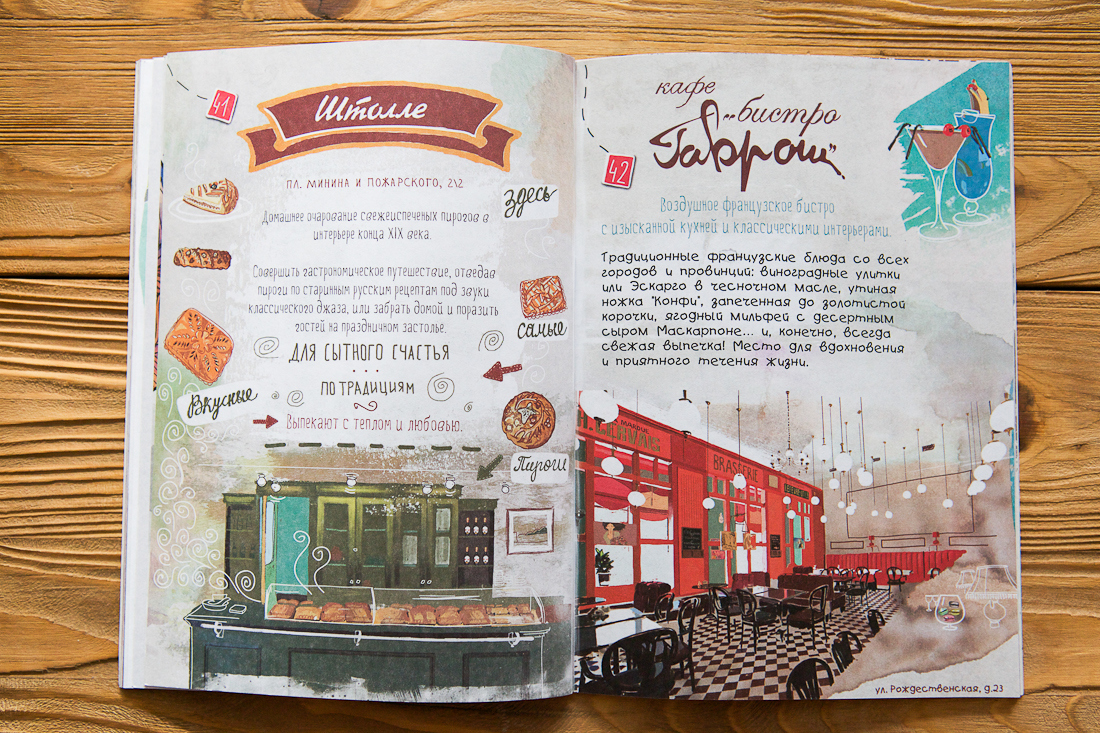 41
Штолле
пл. Минина и Пожарского, 2\2
Здесь
Домашнее очарование свежеиспеченых пирогов в
интерьере конца XIX века.
Совершить гастрономическое путешествие, отведав
пироги по старинным русским рецептам под звуки
классического джаза, или забрать домой и поразить
гостей на праздничном застолье.
Самые
Для сытного счастья
По традициям
Вкусные
Выпекают с теплом и любовью.
Пироги
кафе
-бистро
"Гаврош"
42
Воздушное французское бистро
с изысканной кухней и классическими интерьерами.
Традиционные французские блюда со всех
городов и провинций: виноградные улитки
или Эскарго в чесночном масле, утиная
ножка "Конфи", запеченная до золотистой
корочки, ягодный мильфей с десертным
сыром Маскарпоне... и, конечно, всегда
свежая выпечка! Место для вдохновения
и приятного течения жизни.
BRASSERIE
ул. Рождественская, д.23